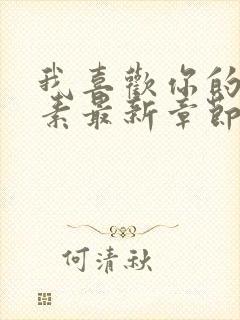 我喜歡你的
素最新章節
何清秋